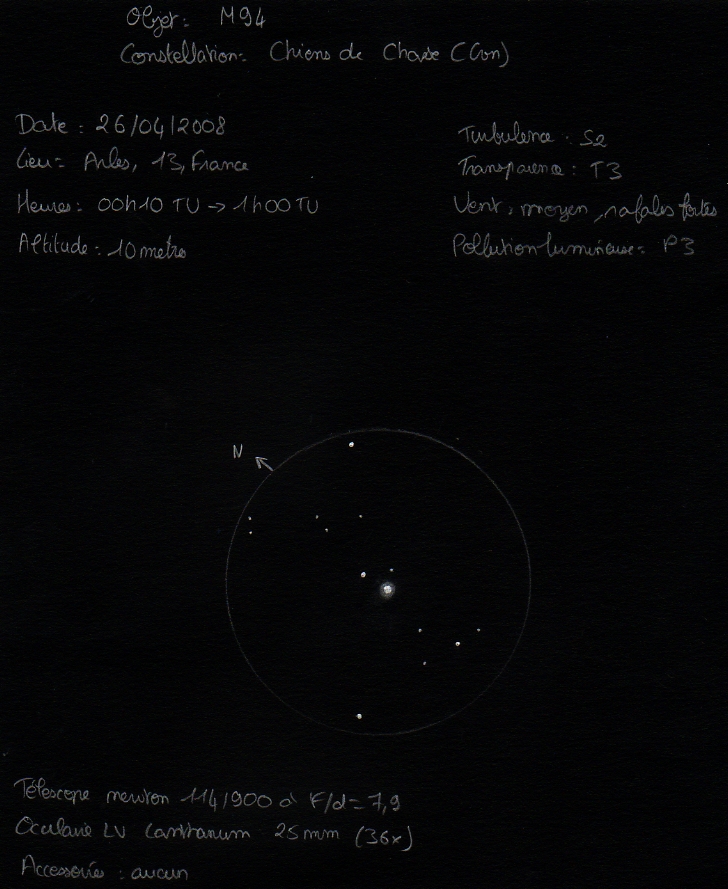 Objet: M94
Constellation: Chiens de Chasse (Cvn)
Date: 26/04/2008
Lieu: Arles, 13, France
Heures: 00h10 TU → 1h00 TU
Altitude: 10 metres
Turbulence: S2
Transparence: T3
Vent: moyen, rafales fortes
Pollution lumineuse: P3
N
Télescope newton 114/900 à F/d=7,9
Oculaire LV Lanthanum 25mm (36x)
Accessoire: aucun